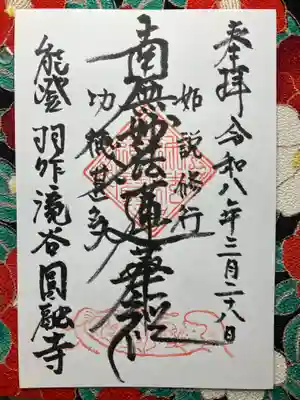 奉拝 令和八年三月二十八日
如説修行
南無妙法蓮華経
功徳甚多
能登 羽咋 滝谷 圓融寺